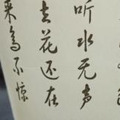 听水无声
去花还在
来鸟不惊